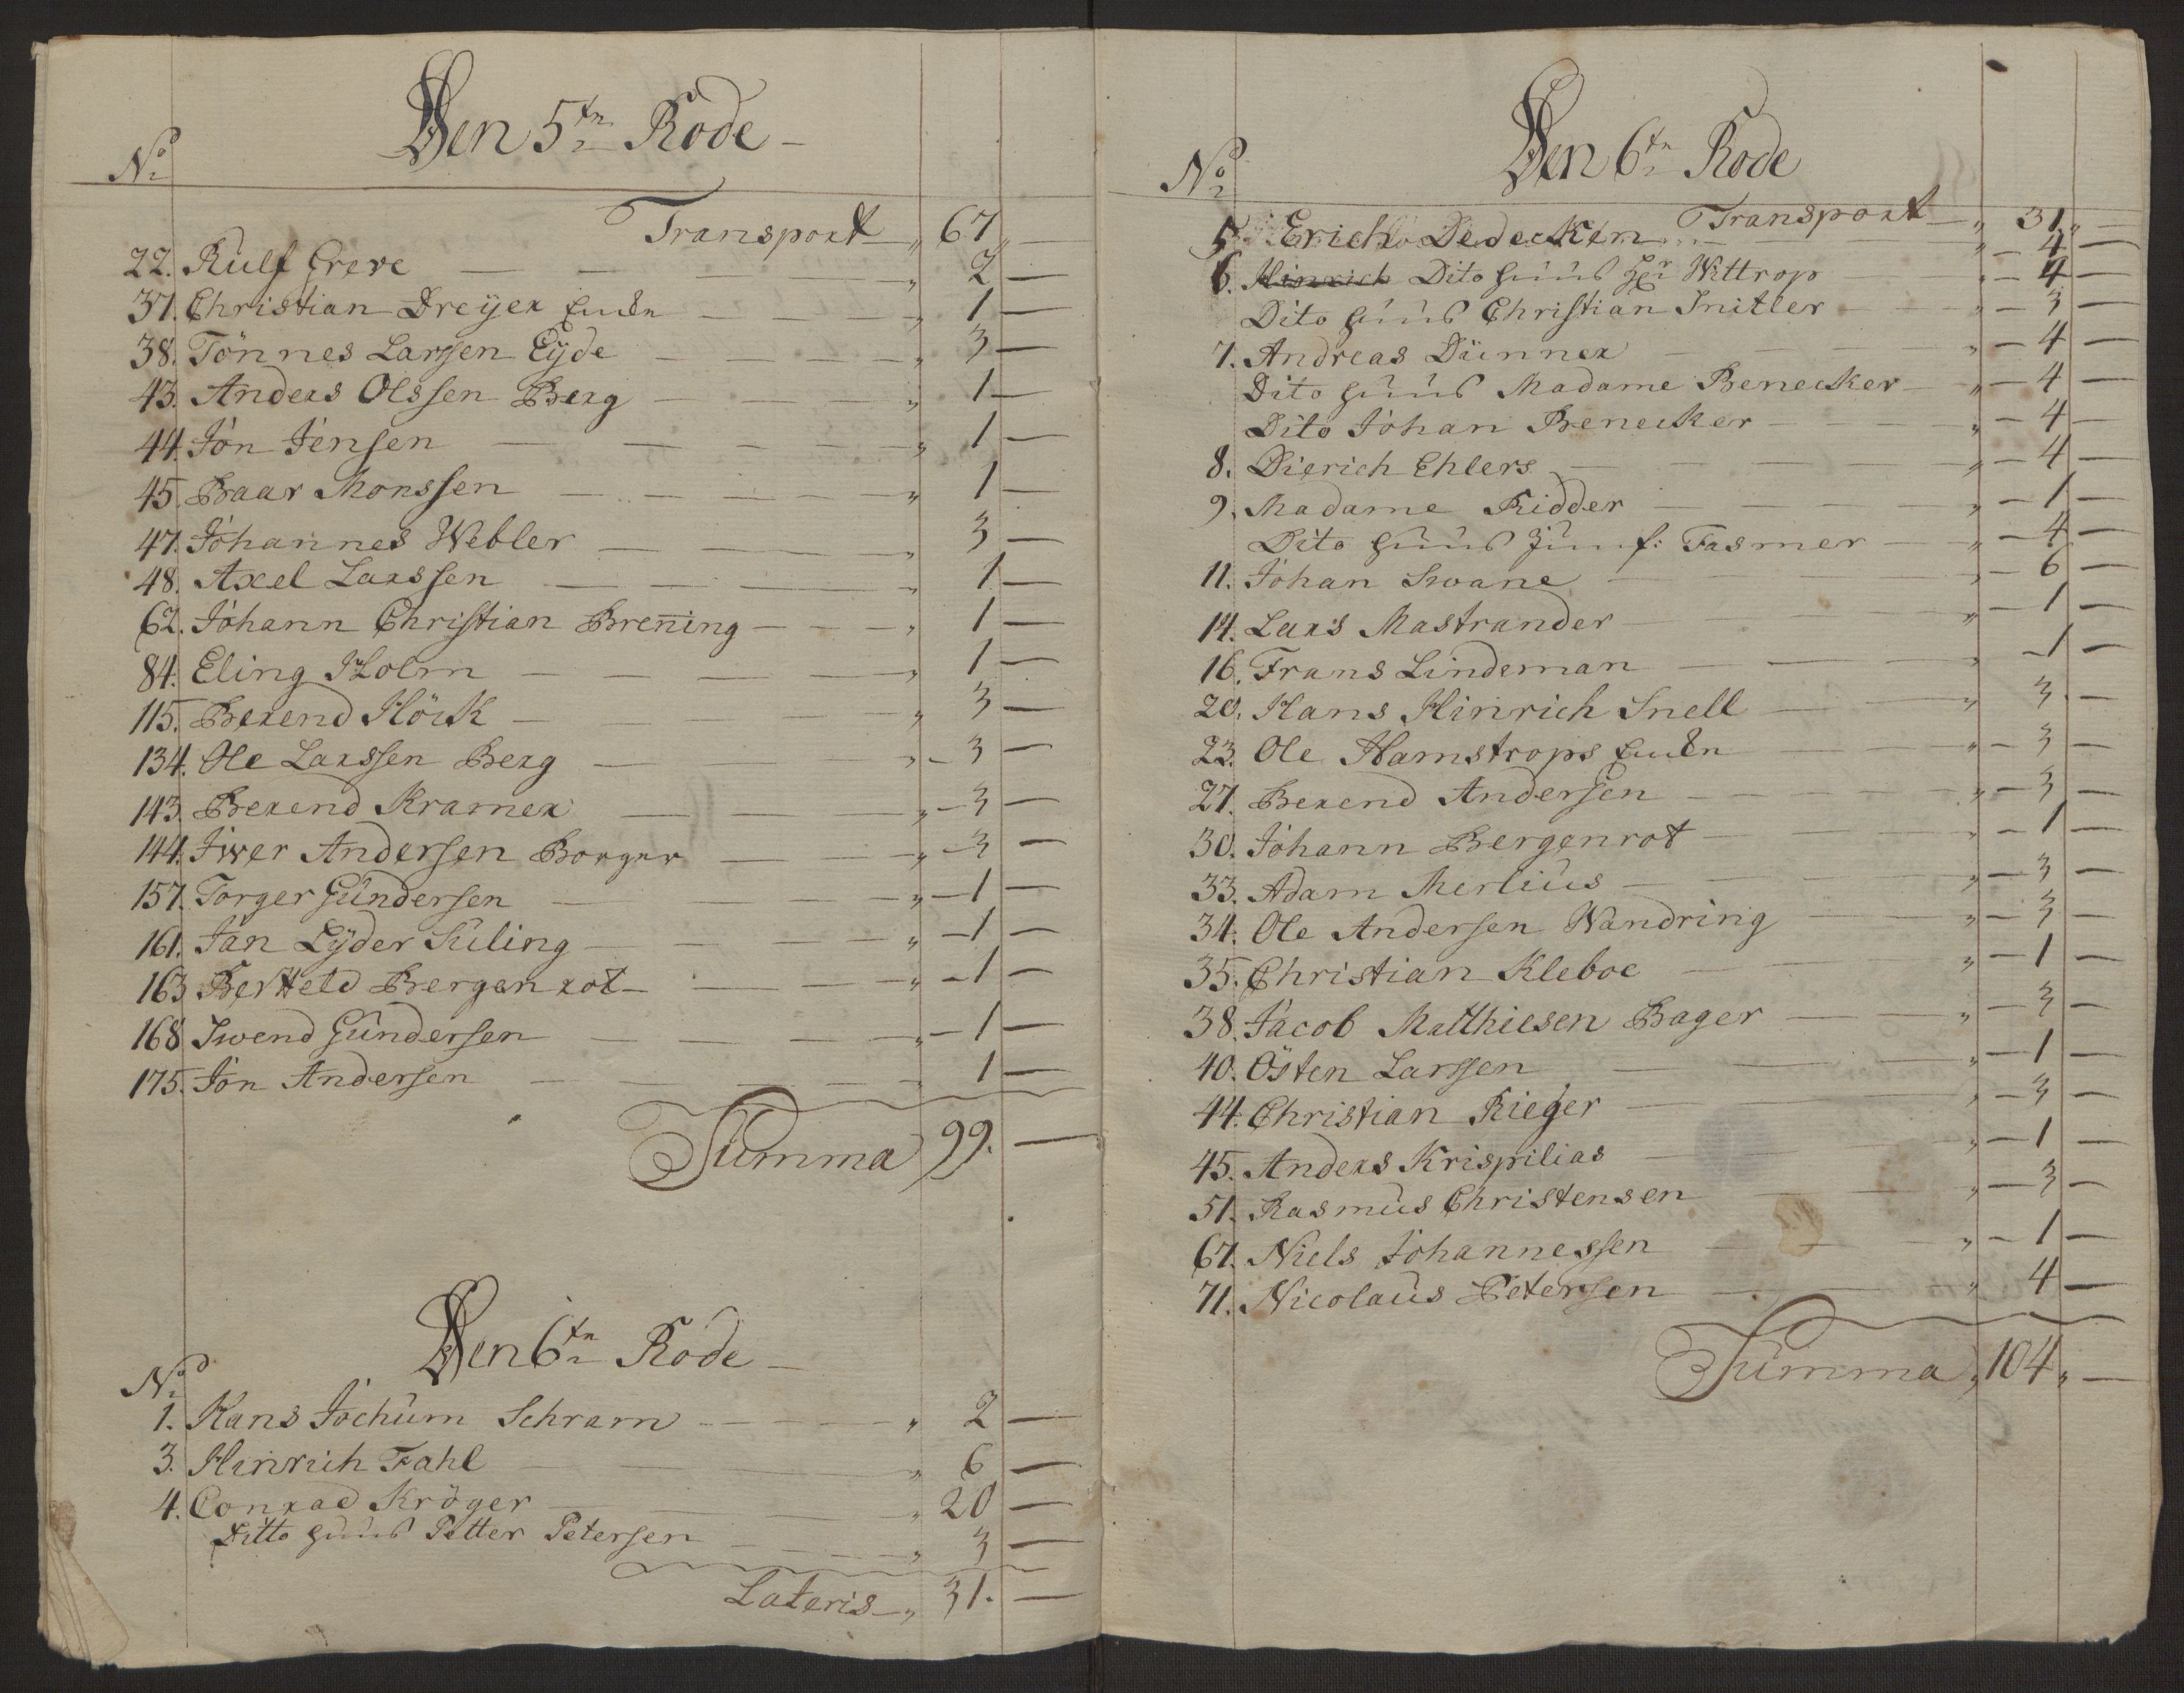 Den 5tn Rode
No
Transport „ 67 „ —
22. Rulf Greve — „ 2 —
37. Christian Dreyer Enckn — „ 1 —
38. Tönnes Larssen Eyde — „ 3 —
43. Anders Olssen Berg — „ 1 —
44. Jon Jensen — „ 1 —
45. Baar Monssen — „ 1 —
47. Johannes Webler — „ 3 —
48. Axel Larssen — „ 1 —
62. Johann Christian Brening — „ 1 —
84. Eling Holm — „ 1 —
115. Berend Höck — „ 3 —
134. Ole Larssen Berg — „ 3 —
143. Berend Kramer — „ 3 —
144. Iwer Andersen Borger — „ 3 —
157. Torger Gundersen — „ 1 —
161. Jan Lyder Kuling — „ 1 —
163 Bertteld Bergenrot — „ 1 —
168 Swend Gundersen — „ 1 —
175. Jon Andersen — „ 1 —
Summa 99. —
Den 6tn Rode
No
1. Hans Jochum Schram — „ 2 —
3. Hinrich Fahl — „ 6 —
4. Conrad Kröger — „ 20 —
Ditto Huus Petter Petersen — „ 3 —
Lateris „ 31. —
Den 6tn Rode
No
Transport „ 31 „ —
5. Erich Dedecken — „ 4 —
6. Hinrich Dito Huus Hr Wittrop „ 4 —
Dito Huus Christian Snitler — „ 3 —
7. Andreas Dünner — „ 4 —
Dito Huus Madame Benecker — „ 4 —
Dito Johan Benecker — „ 4 —
8. Dierich Ehlers — „ 4 —
9. Madame Ridder — „ 1 —
Dito Huus Jumf: Fasmer — „ 4 —
11. Johan Swane — „ 6 —
14. Lars Mastrander — „ 1 —
16. Frans Lindeman — „ 1 —
20. Hans Hinrich Snell — „ 3 —
23. Ole Hamstrops Enckn — „ 3 —
27. Berend Andersen — „ 3 —
30. Johann Bergenrot — „ 1 —
33. Adam Merlius — „ 3 —
34. Ole Andersen Wandring — „ 3 —
35. Christian Kleboe — „ 1 —
38. Jacob Matthiesen Bager — „ 3 —
40. Östen Larssen — „ 1 —
44. Christian Rieger — „ 3 —
45. Anders Krispilias — „ 1 —
51. Rasmus Christensen — „ 3 —
67. Niels Johannessen — „ 1 —
71. Nicolaus Petersen — „ 4 —
Summa „ 104 „ —